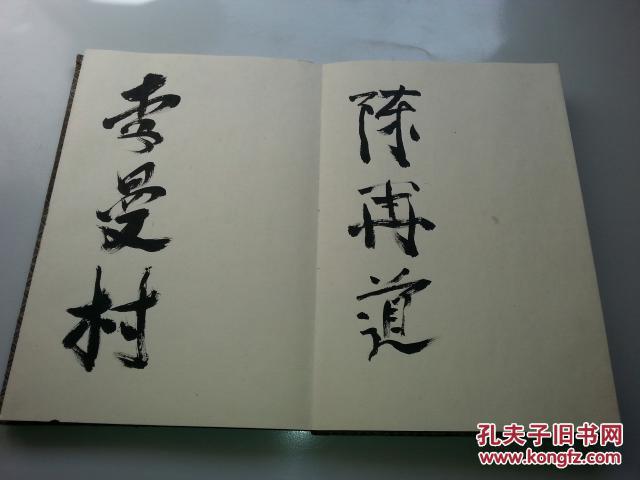 陈再道
李曼村
孔夫子旧书网
www.kongfz.com